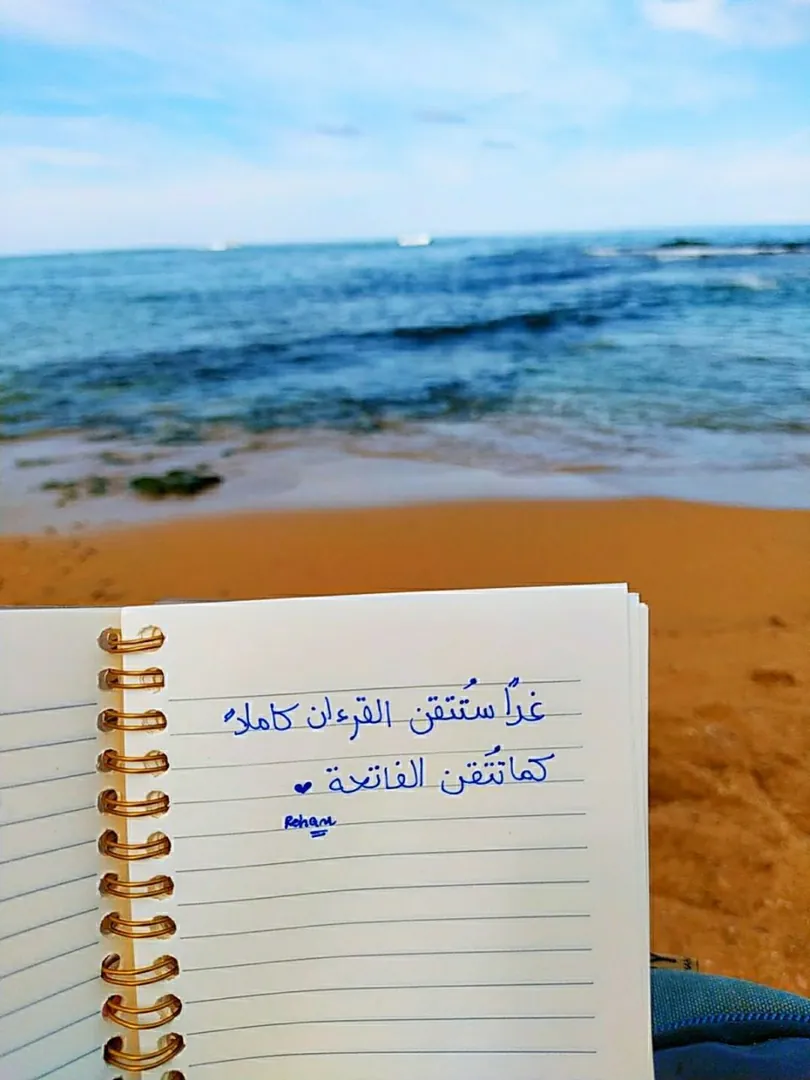 غدًا ستُتقن القرءان كاملاً
كما تُتقن الفاتحة ♥
Roham